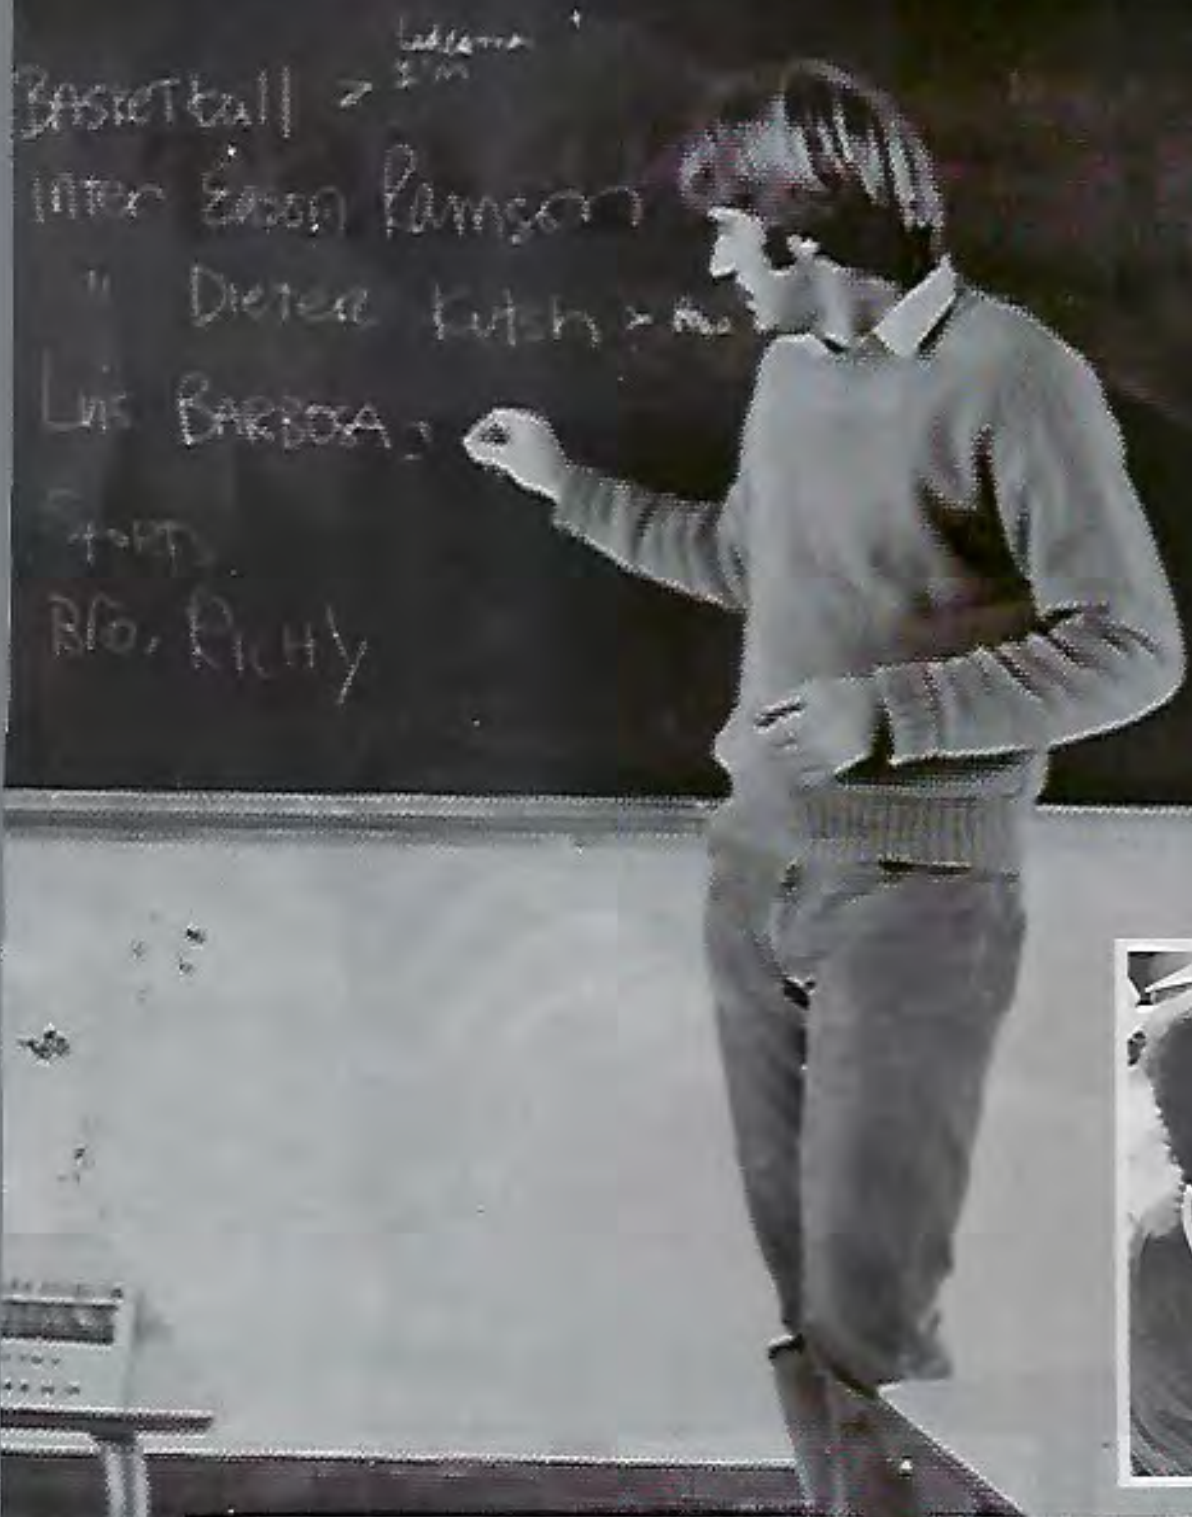 BASKETball >
Inter Eason Ramson
" Dieter Kutsh >
Luis BARBOSA,
BrO, RicHy